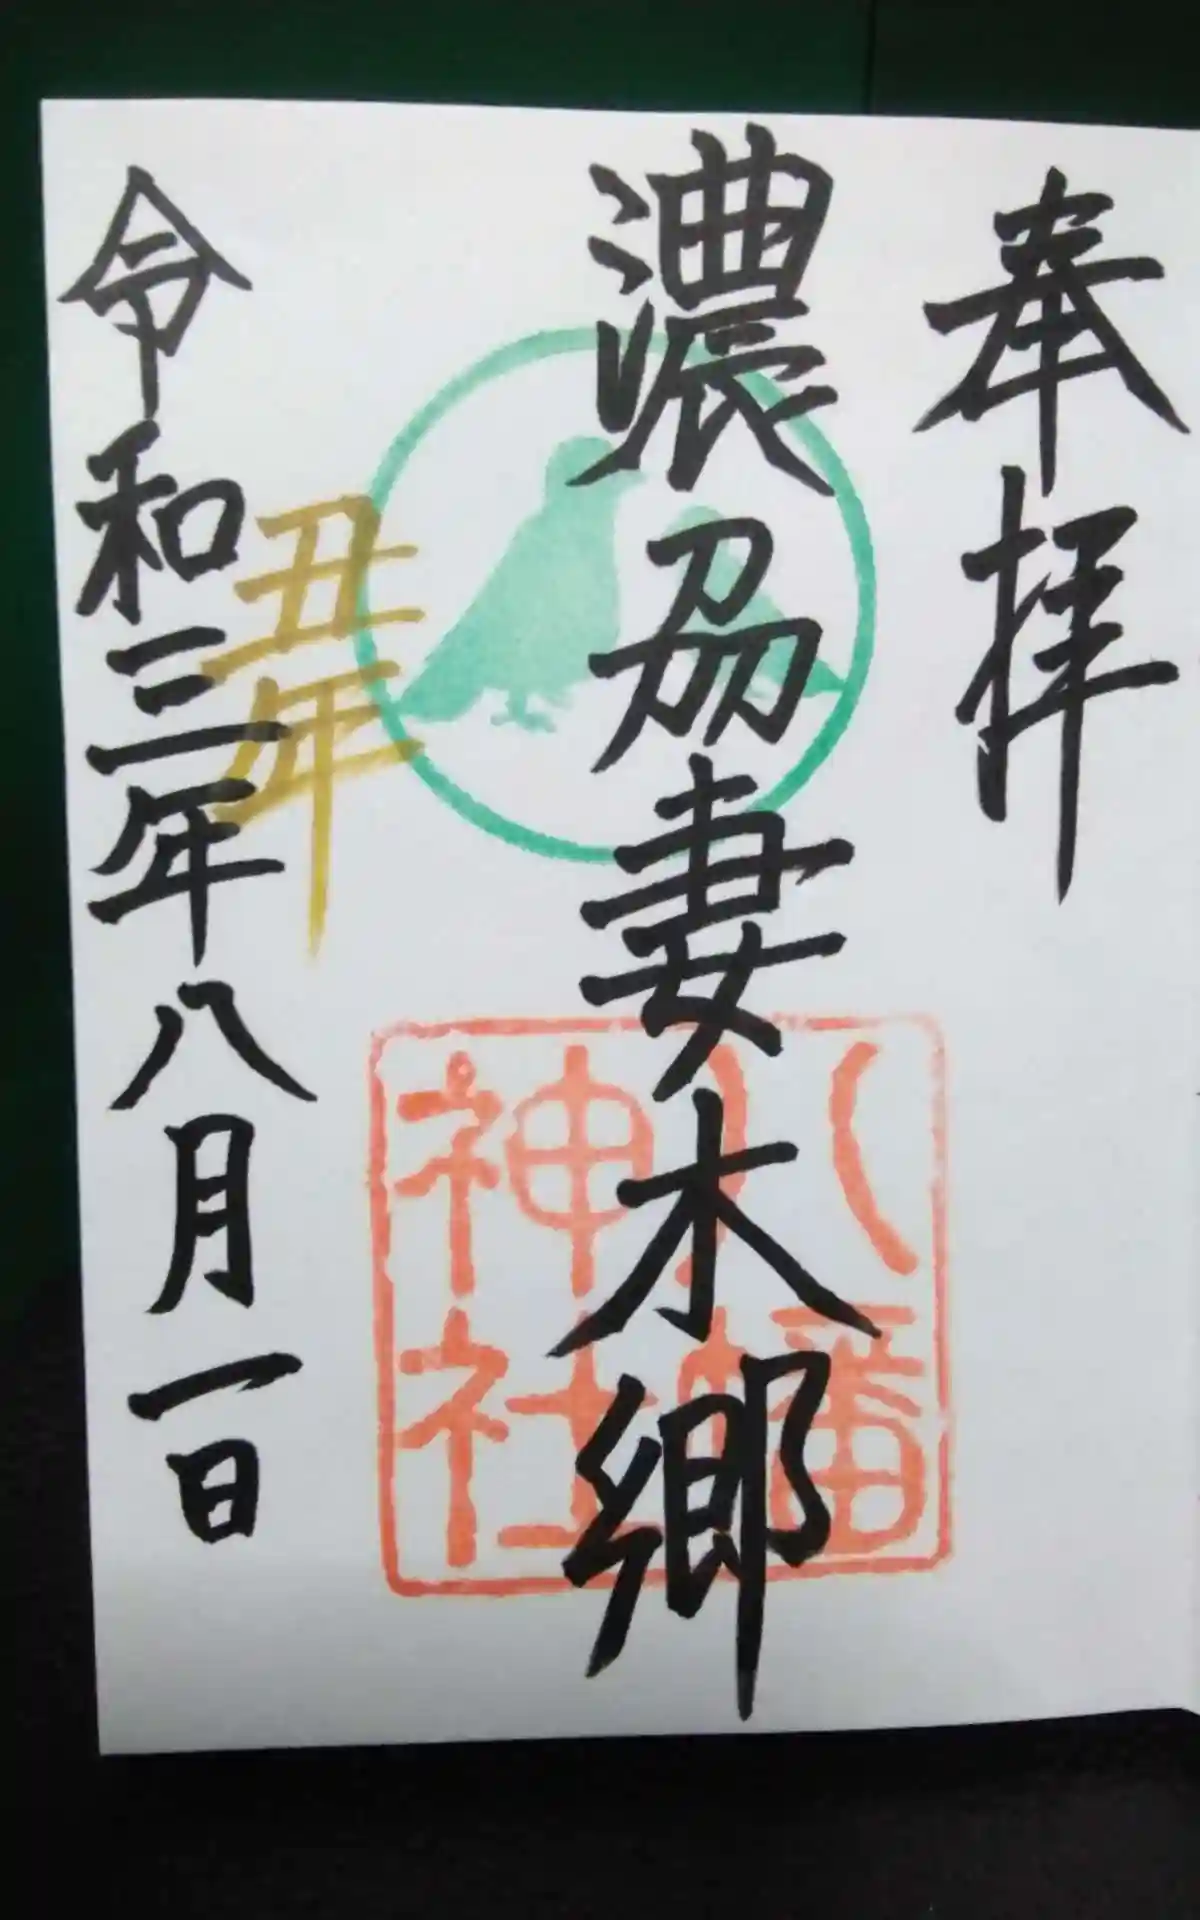 奉拝
濃州妻木郷
八幡
神社
丑年
令和三年八月一日